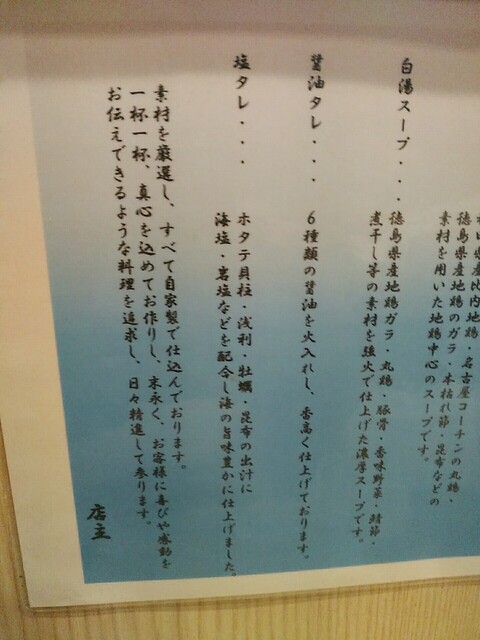 県産比内地鶏・名古屋コーチンの丸鶏・
徳島県産地鶏のガラ・本枯れ節・昆布などの
素材を用いた地鶏中心のスープです。
白湯スープ・・・
徳島県産地鶏ガラ・丸鶏・豚骨・香味野菜・鯖節・
煮干し等の素材を強火で仕上げた濃厚スープです。
醤油タレ・・・
6種類の醤油を火入れし、香高く仕上げております。
塩タレ・・・
ホタテ貝柱・浅利・牡蠣・昆布の出汁に
海塩・岩塩などを配合し海の旨味豊かに仕上げました。
素材を厳選し、すべて自家製で仕込んでおります。
一杯一杯、真心を込めてお作りし、末永く、お客様に喜びや感動を
お伝えできるような料理を追求し、日々精進して参ります。
店主